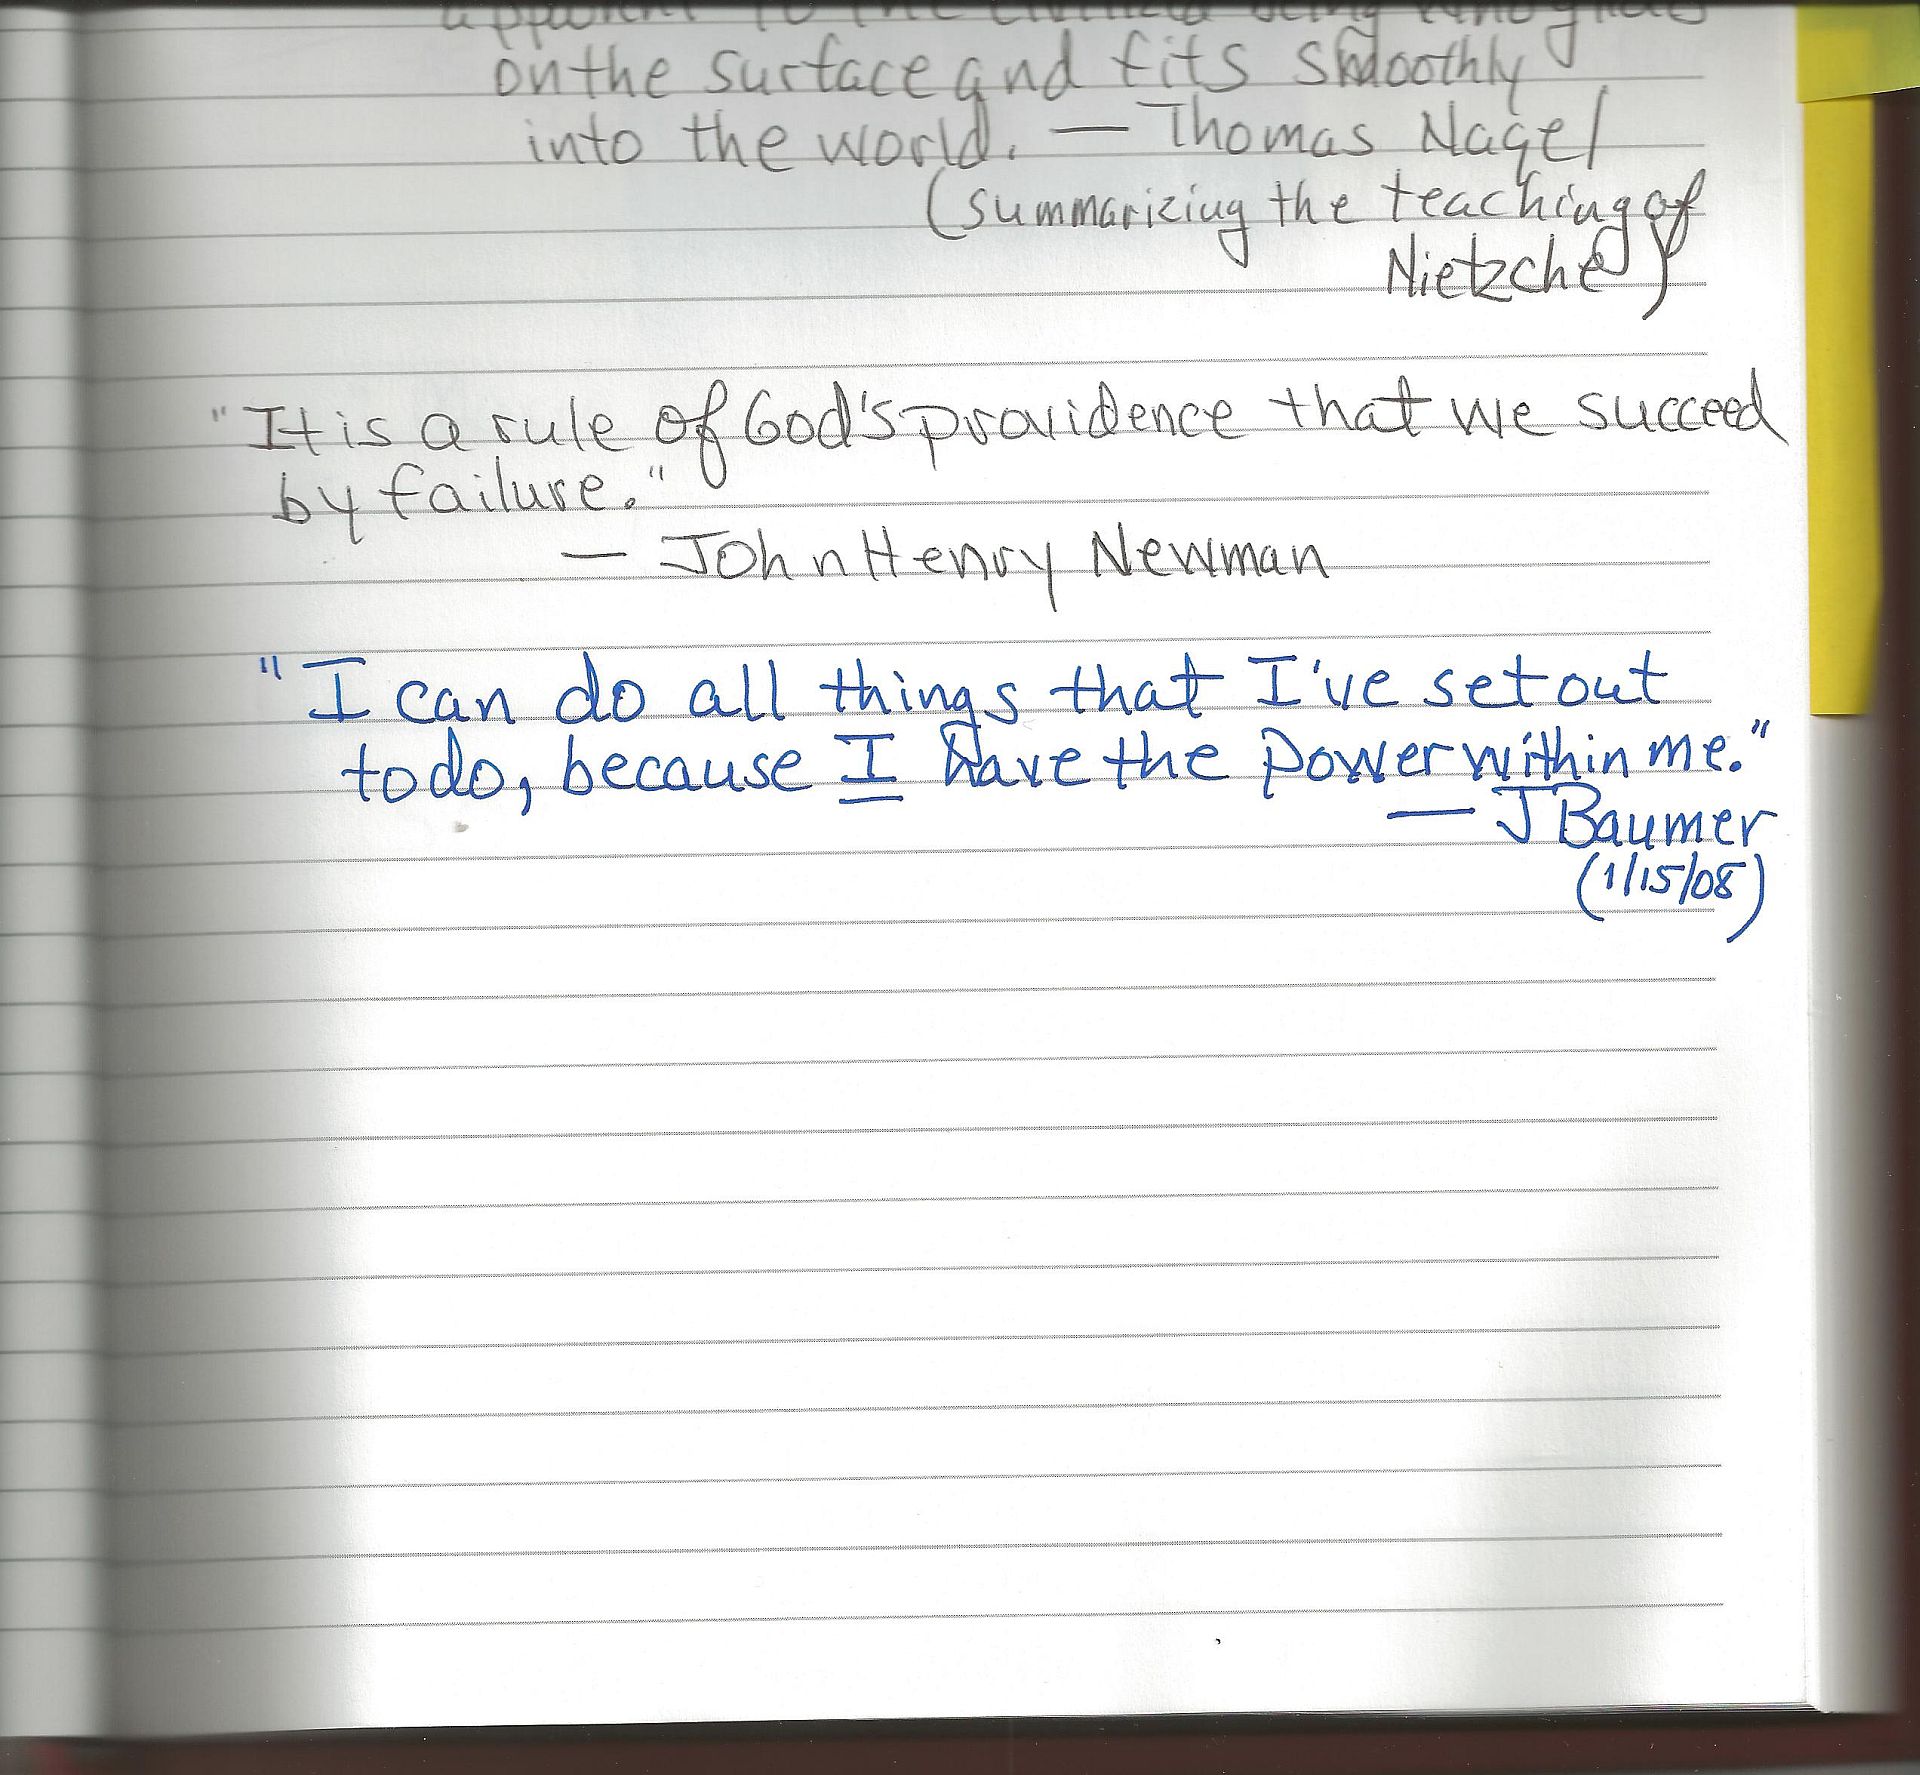 apparent to the civilized being who glides
on the surface and fits smoothly
into the world. — Thomas Nagel
(summarizing the teaching of
Nietzche)
"It is a rule of God's providence that we succeed
by failure."
— John Henry Newman
"I can do all things that I've set out
to do, because I have the power within me."
— J Baumer
(1/15/08)